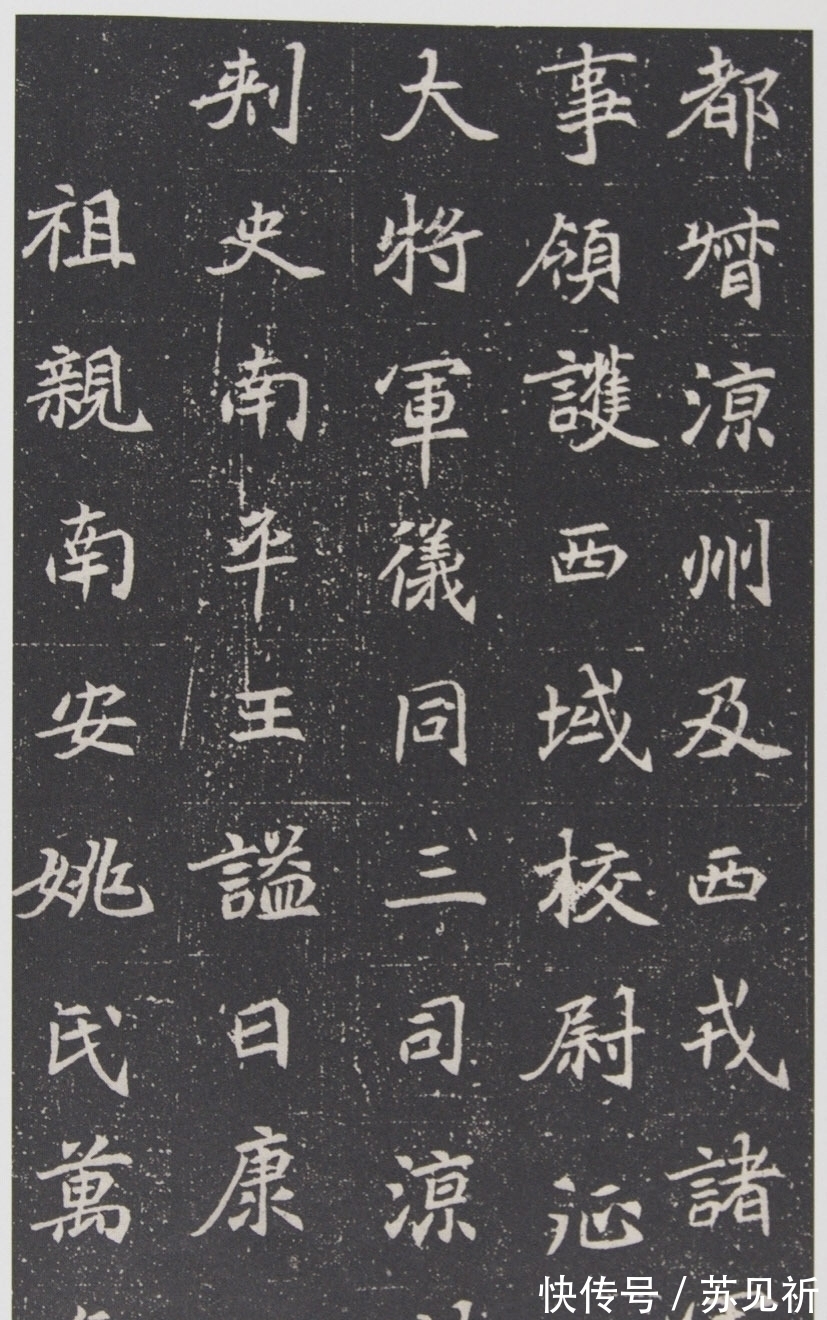 都督涼州及西戎諸
事領護西域校尉征
大將軍儀同三司涼
刺史南平王謚曰康
祖親南安姚氏萬
快传号 / 苏见祈